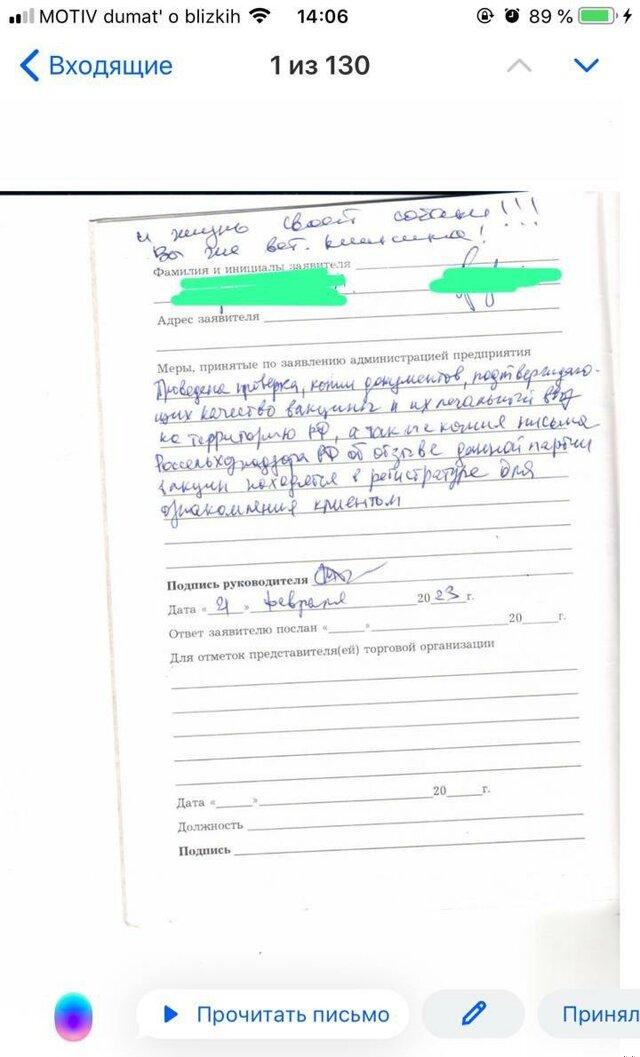 MOTIV dumat' o blizkih 14:06 89 %
Входящие 1 из 130
и жизнь своей собаки!!!
Вы же вет. клиника!
Фамилия и инициалы заявителя
Адрес заявителя
Меры, принятые по заявлению администрацией предприятия
Проведена проверка, копии документов, подтверждаю-
щих качество вакцины и их легальный ввоз
на территорию РФ, а так же копия письма
Россельхознадзора РФ об отзыве данной партии
вакцин находятся в регистратуре для
ознакомления клиентом
Подпись руководителя
Дата « » февраля 2023 г.
Ответ заявителю послан «____»____ 20____г.
Для отметок представителя(ей) торговой организации
Дата «____»____ 20____г.
Должность
Подпись
Прочитать письмо Принял